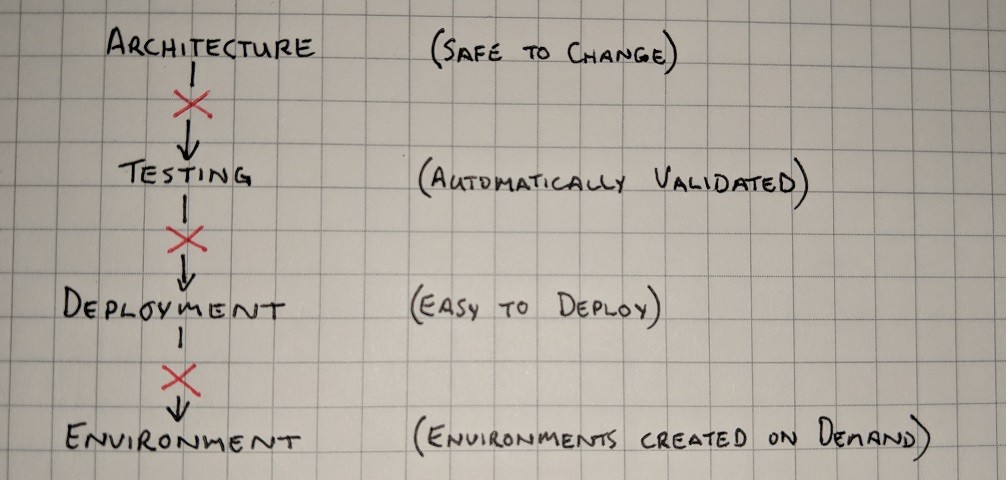 ARCHITECTURE (SAFE TO CHANGE)
TESTING (AUTOMATICALLY VALIDATED)
DEPLOYMENT (EASY TO DEPLOY)
ENVIRONMENT (ENVIRONMENTS CREATED ON DEMAND)